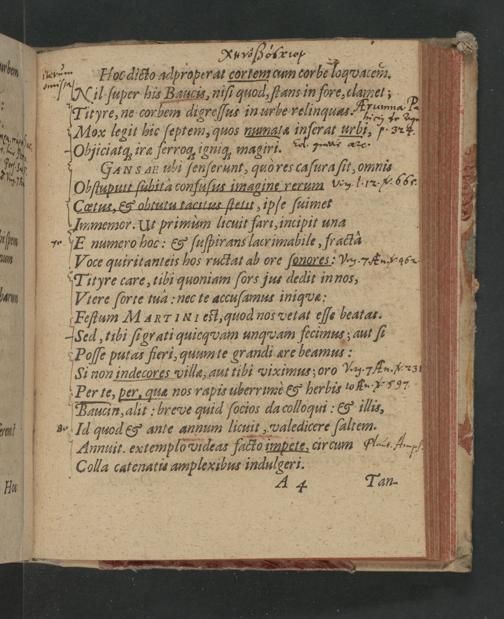 Χηνοβόσκιον
Hoc dicto adproperat cortem cum corbe loqvacem.
Nil super his Baucis, nisi quod, stans in fore, clamet;
Tityre, ne corbem digressus in urbe relinquas.
Mox legit hic septem, quos numata inserat urbi,
Objiciatq, iræ ferroq, igniq, magiri.
GANSAE ubi senserunt, quò res casura sit, omnis
Obstuputt subitâ confusus imagine rerum Virg. l. 12. v. 665.
Cœtus, & obtutu tacitus stetit, ipse suimet
Immemor. Ut primùm licuit fari, incipit una
70 E numero hoc: & suspirans lacrimabile, fractâ
Voce quiritanteis hos ructat ab ore sonores: Virg. 7. Æn. v. 962
Tityre care, tibi quoniam sors jus dedit in nos,
Utere sorte tuâ: nec te accusamus iniquæ:
Festum MARTINI est, quod nos vetat esse beatas.
Sed, tibi si grati quicqvam unqvam fecimus; aut si
Posse putas fieri, quum te grandi ære beamus:
Si non indecores villæ, aut tibi viximus; oro Virg. 7 Æn. v. 231
Per te, per, quæ nos rapis uberrimè & herbis 10 Æn. v. 597.
Baucin, alit: breve quid socios da colloqui: & illis,
80 Id quod & ante annum licuit, valedicere saltem.
Annuit. extemplo videas facto impete, circum Plaut. Amph.
Colla catenatis amplexibus indulgeri.
A 4 Tan-